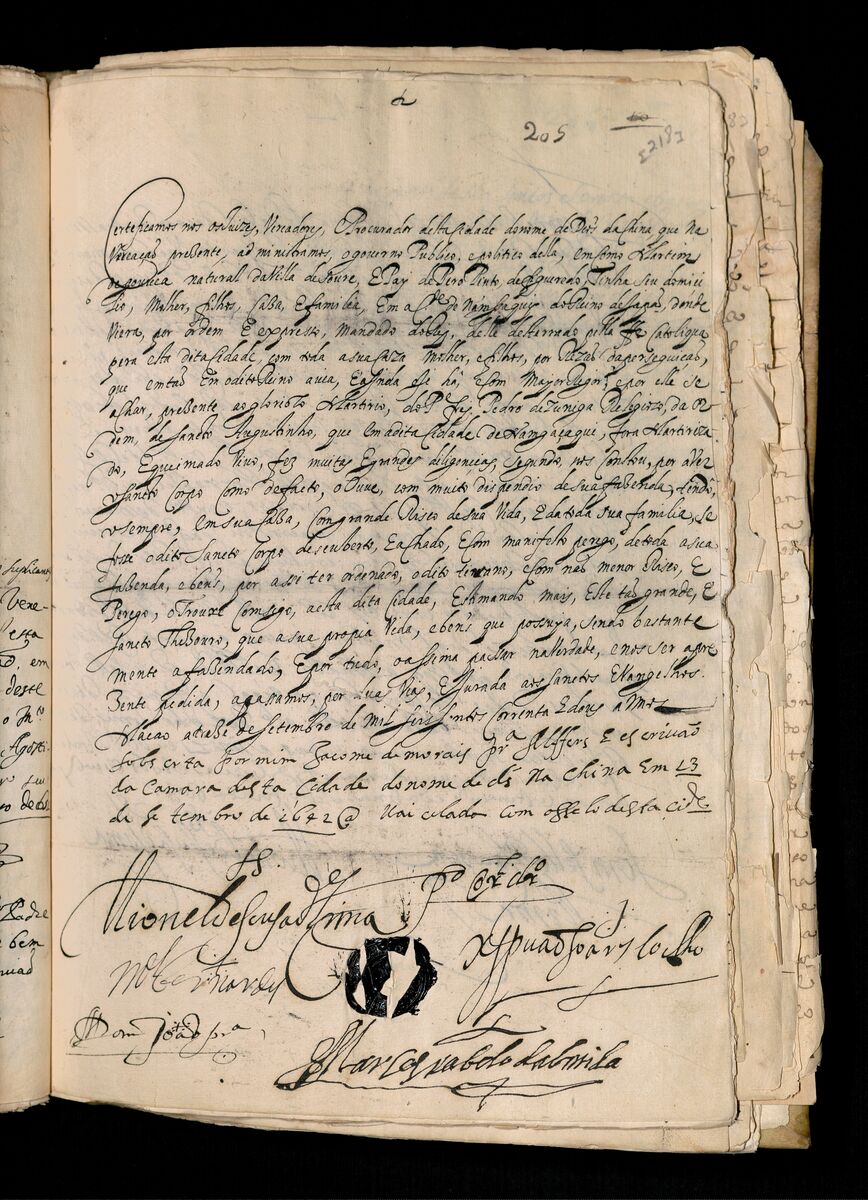 205
Certeficamos nos os Juizes, Vereadores, E Procurador desta Cidade do nome de Deos da China que na
Vereação prezente, administramos, o governo Publico, e politico della, em Como Martim
de gouvea natural da Villa de Soure, E Pay de Pero Pinto, de figueredo, Tinha seu domici
lio, Molher, filhos, Caza, E familia, Em a Cde do Nãmgasaqui do Reino de Japaõ, donde
Viera, por ordem E expresso, mandado do Rej, delle desterrado pella fe Catoliqua
pera esta dita Cidade, com toda a sua Caza Molher, e filhos, por Rezaõ da perseguicaõ,
que emtaõ Em o dito Reino avia, E ainda oje ha, E Com Mayor Rigor; e por elle se
achar, prezente ao glorioso Martirio, do P. frey Pedro de Zuniga Relegiozo, da or
dem, de Sancto Augustinho, que em a dita Cidade de Namgaçaqui, fora Martiriza
do, E queimado Vivo, fez muitas E grandes diligencias, segundo, nos Constou, por aver
o Sancto Corpo Como de facto, o Ouve, com muito dispendio de sua fazenda, tendo
o sempre, em sua Caza, Com grande Risco de sua Vida, E da toda sua familia, se
fosse o dito Sancto Corpo descuberto, E achado, E Com manifesto perigo, de toda a sua
fazenda, e bens, por assi ter ordenado, o dito tirano, e Com naõ menor Risco, E
Perigo, o Trouxe Comsigo, a esta dita Cidade, Estimando mais, Este taõ grande, E
Sancto Thezouro, que a sua propia Vida, e bens que possuya, sendo bastante
mente afazendado, E por tudo, o assima passar na Verdade, e nos ser a pre
zente pedida, a passamos, por duas Vias, E Jurada aos Sanctos Evangelhos.
Macao a treze de Setembro de Mil seis sentos Correnta E dous Annos
sobscrita por mim Jacome de morais pra Alffers E escrivaõ
da Camara desta Cidade do nome de ds Na China Em 13
de setembro de 1642 @ Vai celado com o sselo desta cide
Lionel de Sousa de Lima
Coelho